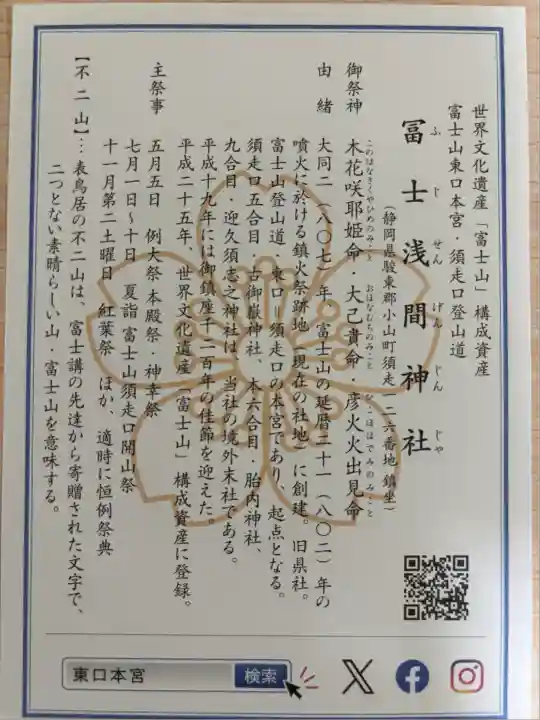 世界文化遺産「富士山」構成資産
富士山東口本宮・須走口登山道
冨士浅間神社
ふじせんげんじんじゃ
(静岡県駿東郡小山町須走一二六番地 鎮坐)
御祭神 木花咲耶姫命・大己貴命・彦火火出見命
このはなさくやひめのみこと おほなむちのみこと ひこほほでみのみこと
由緒 大同二(八〇七)年、富士山の延暦二十一(八〇二)年の
噴火に於ける鎮火祭跡地(現在の社地)に創建。旧県社。
富士山登山道 東口=須走口の本宮であり、起点となる。
須走口五合目 古御嶽神社、本六合目・胎内神社、
九合目・迎久須志之神社は、当社の境外末社である。
平成十九年には御鎮座千二百年の佳節を迎えた。
平成二十五年、世界文化遺産「富士山」構成資産に登録。
主祭事 五月五日 例大祭・本殿祭・神幸祭
七月一日~十日 夏詣 富士山須走口開山祭
十一月第二土曜日 紅葉祭 ほか、適時に恒例祭典
【不二山】…表鳥居の不二山は、富士講の先達から寄贈された文字で、
二つとない素晴らしい山・富士山を意味する。
東口本宮 検索